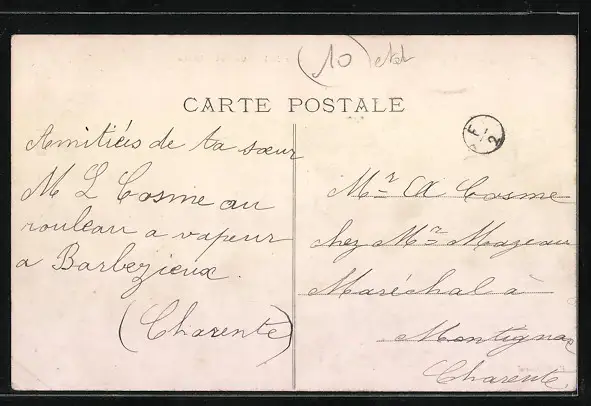 (10)
CARTE POSTALE
Amitiés de ta sœur
M L Cosme au
rouleau a vapeur
a Barbezieux.
(Charente)
F
2
Mr A Cosme
chez Mr Mazeau
Maréchal à
Montignac
Charente